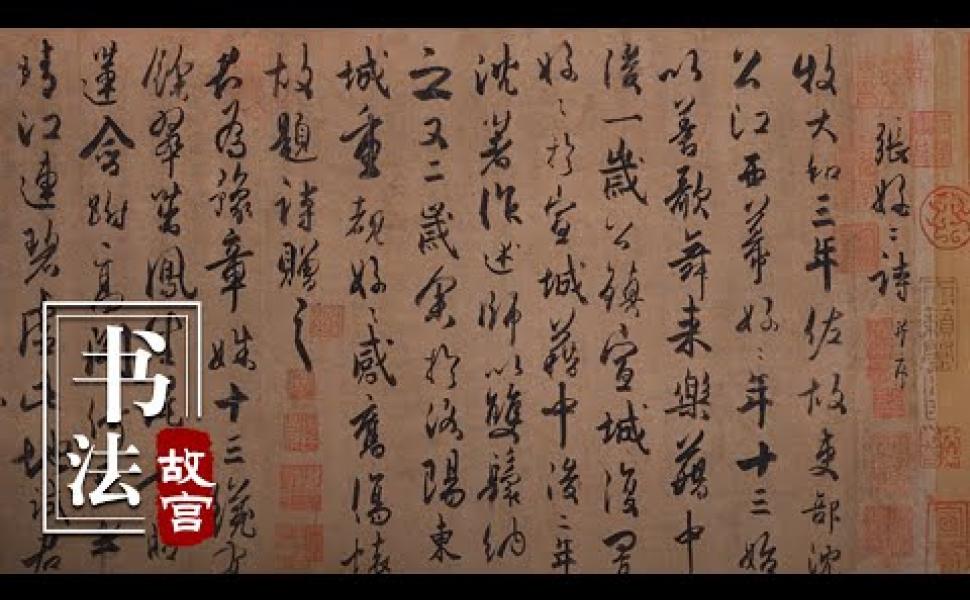 張好〻詩 并序
牧大和三年佐故吏部沈
公江西幕好〻年十三始
以善歌舞来樂藉中
後一歲公鎮宣城復置
好〻於宣城藉中後二年
沈著作述師以雙鬟納
之又二歲余於洛陽東
城重覩好〻感舊傷懷
故題詩贈之
君為豫章姝十三纔
餘翠茁鳳
蓮含跗高閣
江連碧虛此地試君
书法
故宫